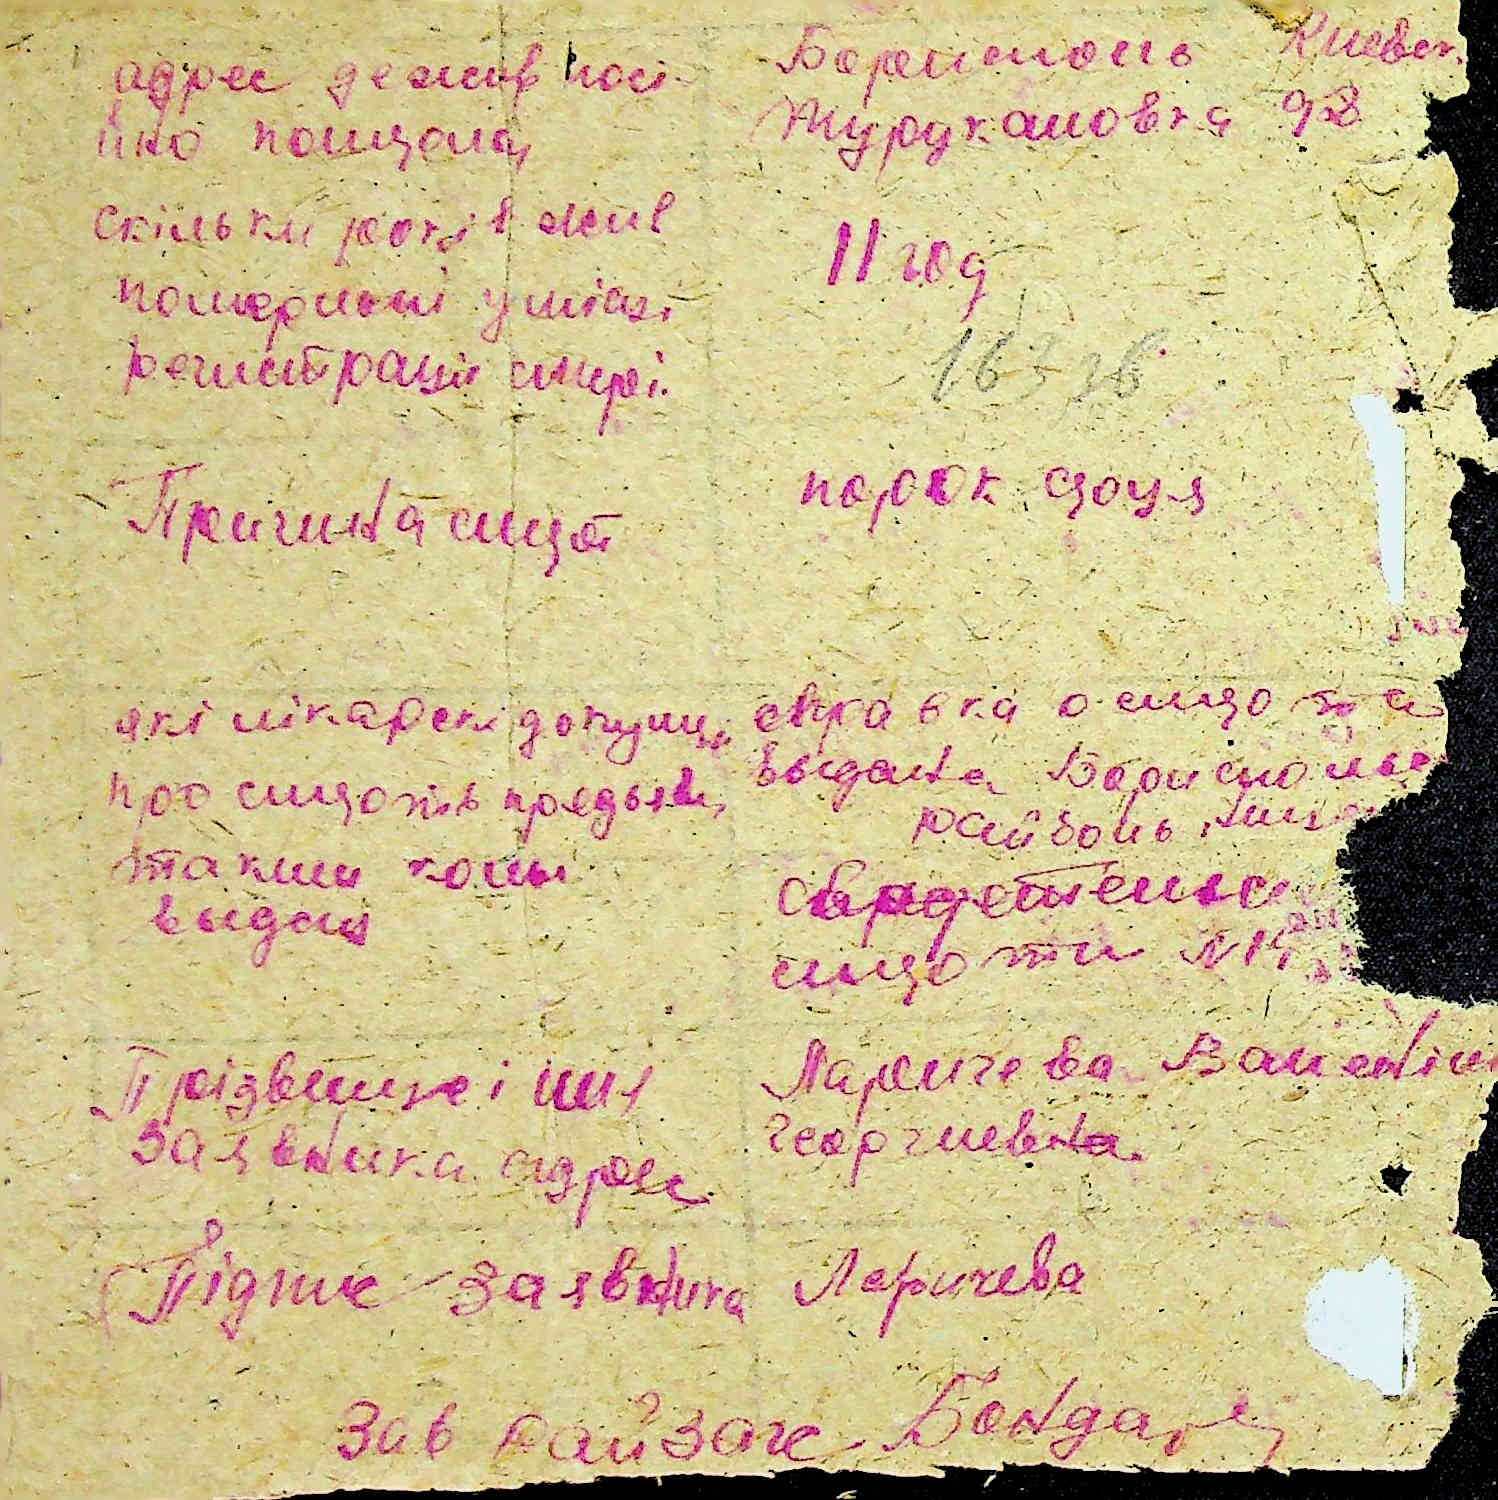 адрес де жив пост-
йно померла
Бориспoль Киевск.
Журукановка 92
скільки років жив
померший у місці
регистраціи смерті.
11 год
Причина смерт
порок сердця
які лікарскі докумн.
про смерть предъявл.
таким коли
выдан
справка о смерти
выдана Бориспольс
район
свидетельс
смерти N
Прізвище і імя
заявника адрес
Ларичева Валентин
Георгиевна.
Підпис заявника
Ларичева
Зав райЗагс